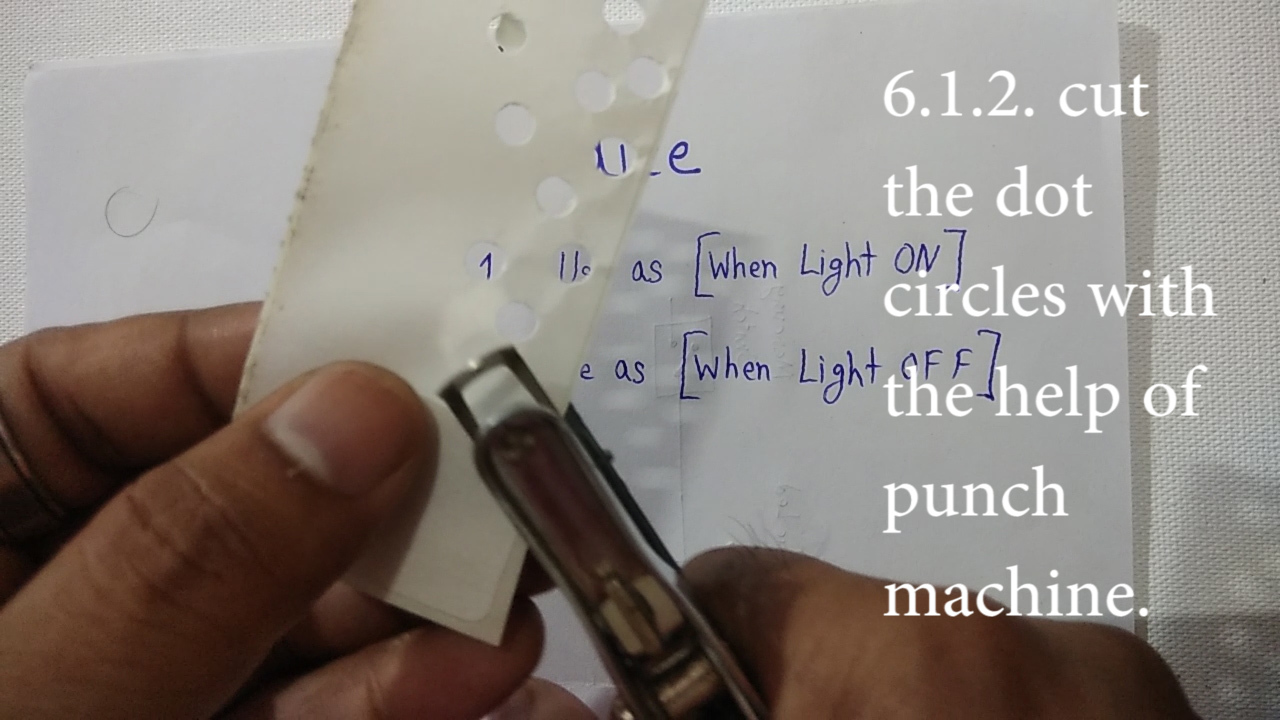 6.1.2. cut
the dot
circles with
the help of
punch
machine.
as [When Light ON]
e as [When Light OFF]